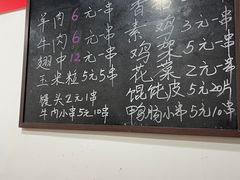 羊肉6元一串
牛肉6元一串
翅中12元一串
玉米粒5元5串
馒头2元1串
牛肉小串5元10串
香
素鸡3元一串
鸡架5元一
花菜2元一串
馄饨皮5元20片
鸭肠小串5元10串